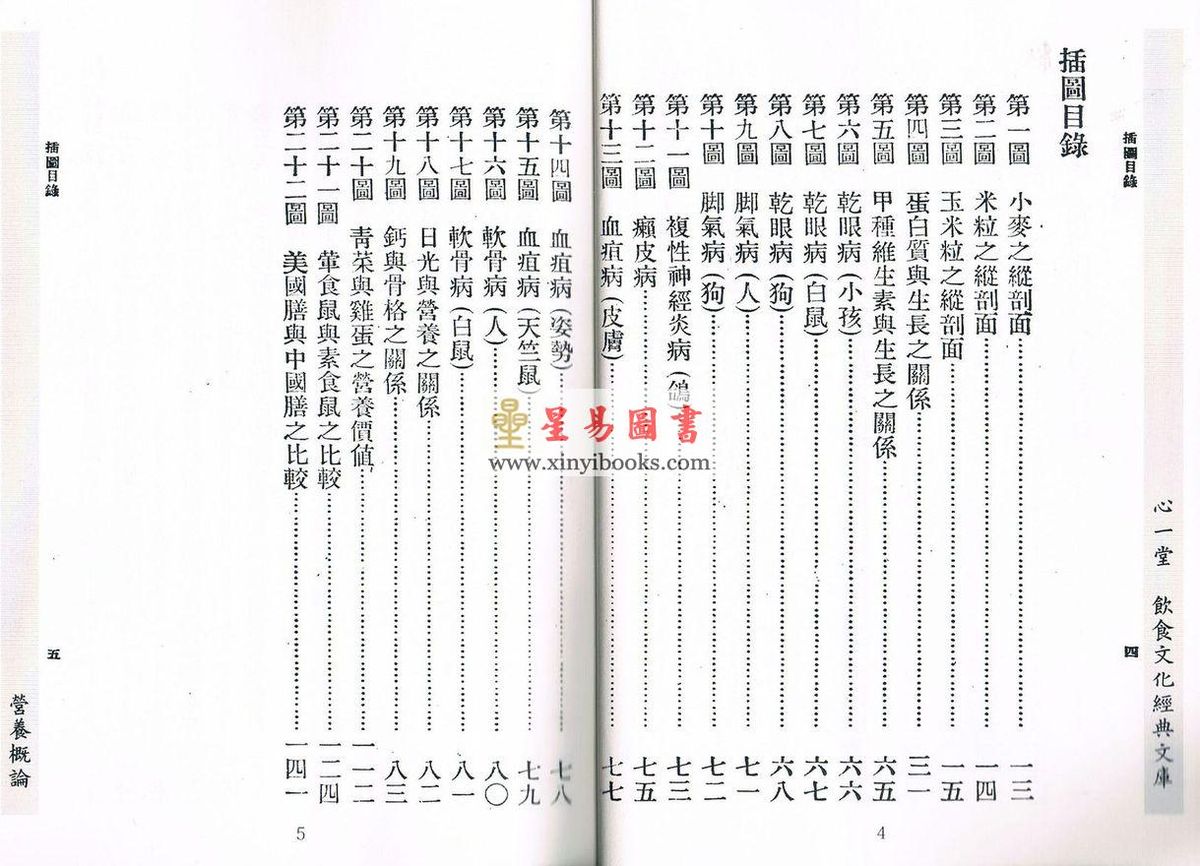 心一堂 飲食文化經典文庫
插圖目錄
四
插圖目錄
第一圖 小麥之縱剖面 一三
第二圖 米粒之縱剖面 一四
第三圖 玉米粒之縱剖面 一五
第四圖 蛋白質與生長之關係 三一
第五圖 甲種維生素與生長之關係 六五
第六圖 乾眼病(小孩) 六六
第七圖 乾眼病(白鼠) 六七
第八圖 乾眼病(狗) 六八
第九圖 脚氣病(人) 七一
第十圖 脚氣病(狗) 七二
第十一圖 複性神經炎病(鴿) 七三
第十二圖 癩皮病 七五
第十三圖 血疽病(皮膚) 七七
4
第十四圖 血疽病(姿勢) 七八
第十五圖 血疽病(天竺鼠) 七九
第十六圖 軟骨病(人) 八〇
第十七圖 軟骨病(白鼠) 八一
第十八圖 日光與營養之關係 八二
第十九圖 鈣與骨格之關係 八三
第二十圖 青菜與雞蛋之營養價值 一一二
第二十一圖 葷食鼠與素食鼠之比較 一二四
第二十二圖 美國膳與中國膳之比較 一四一
5
插圖目錄
五
營養概論
星易圖書
www.xinyibooks.com